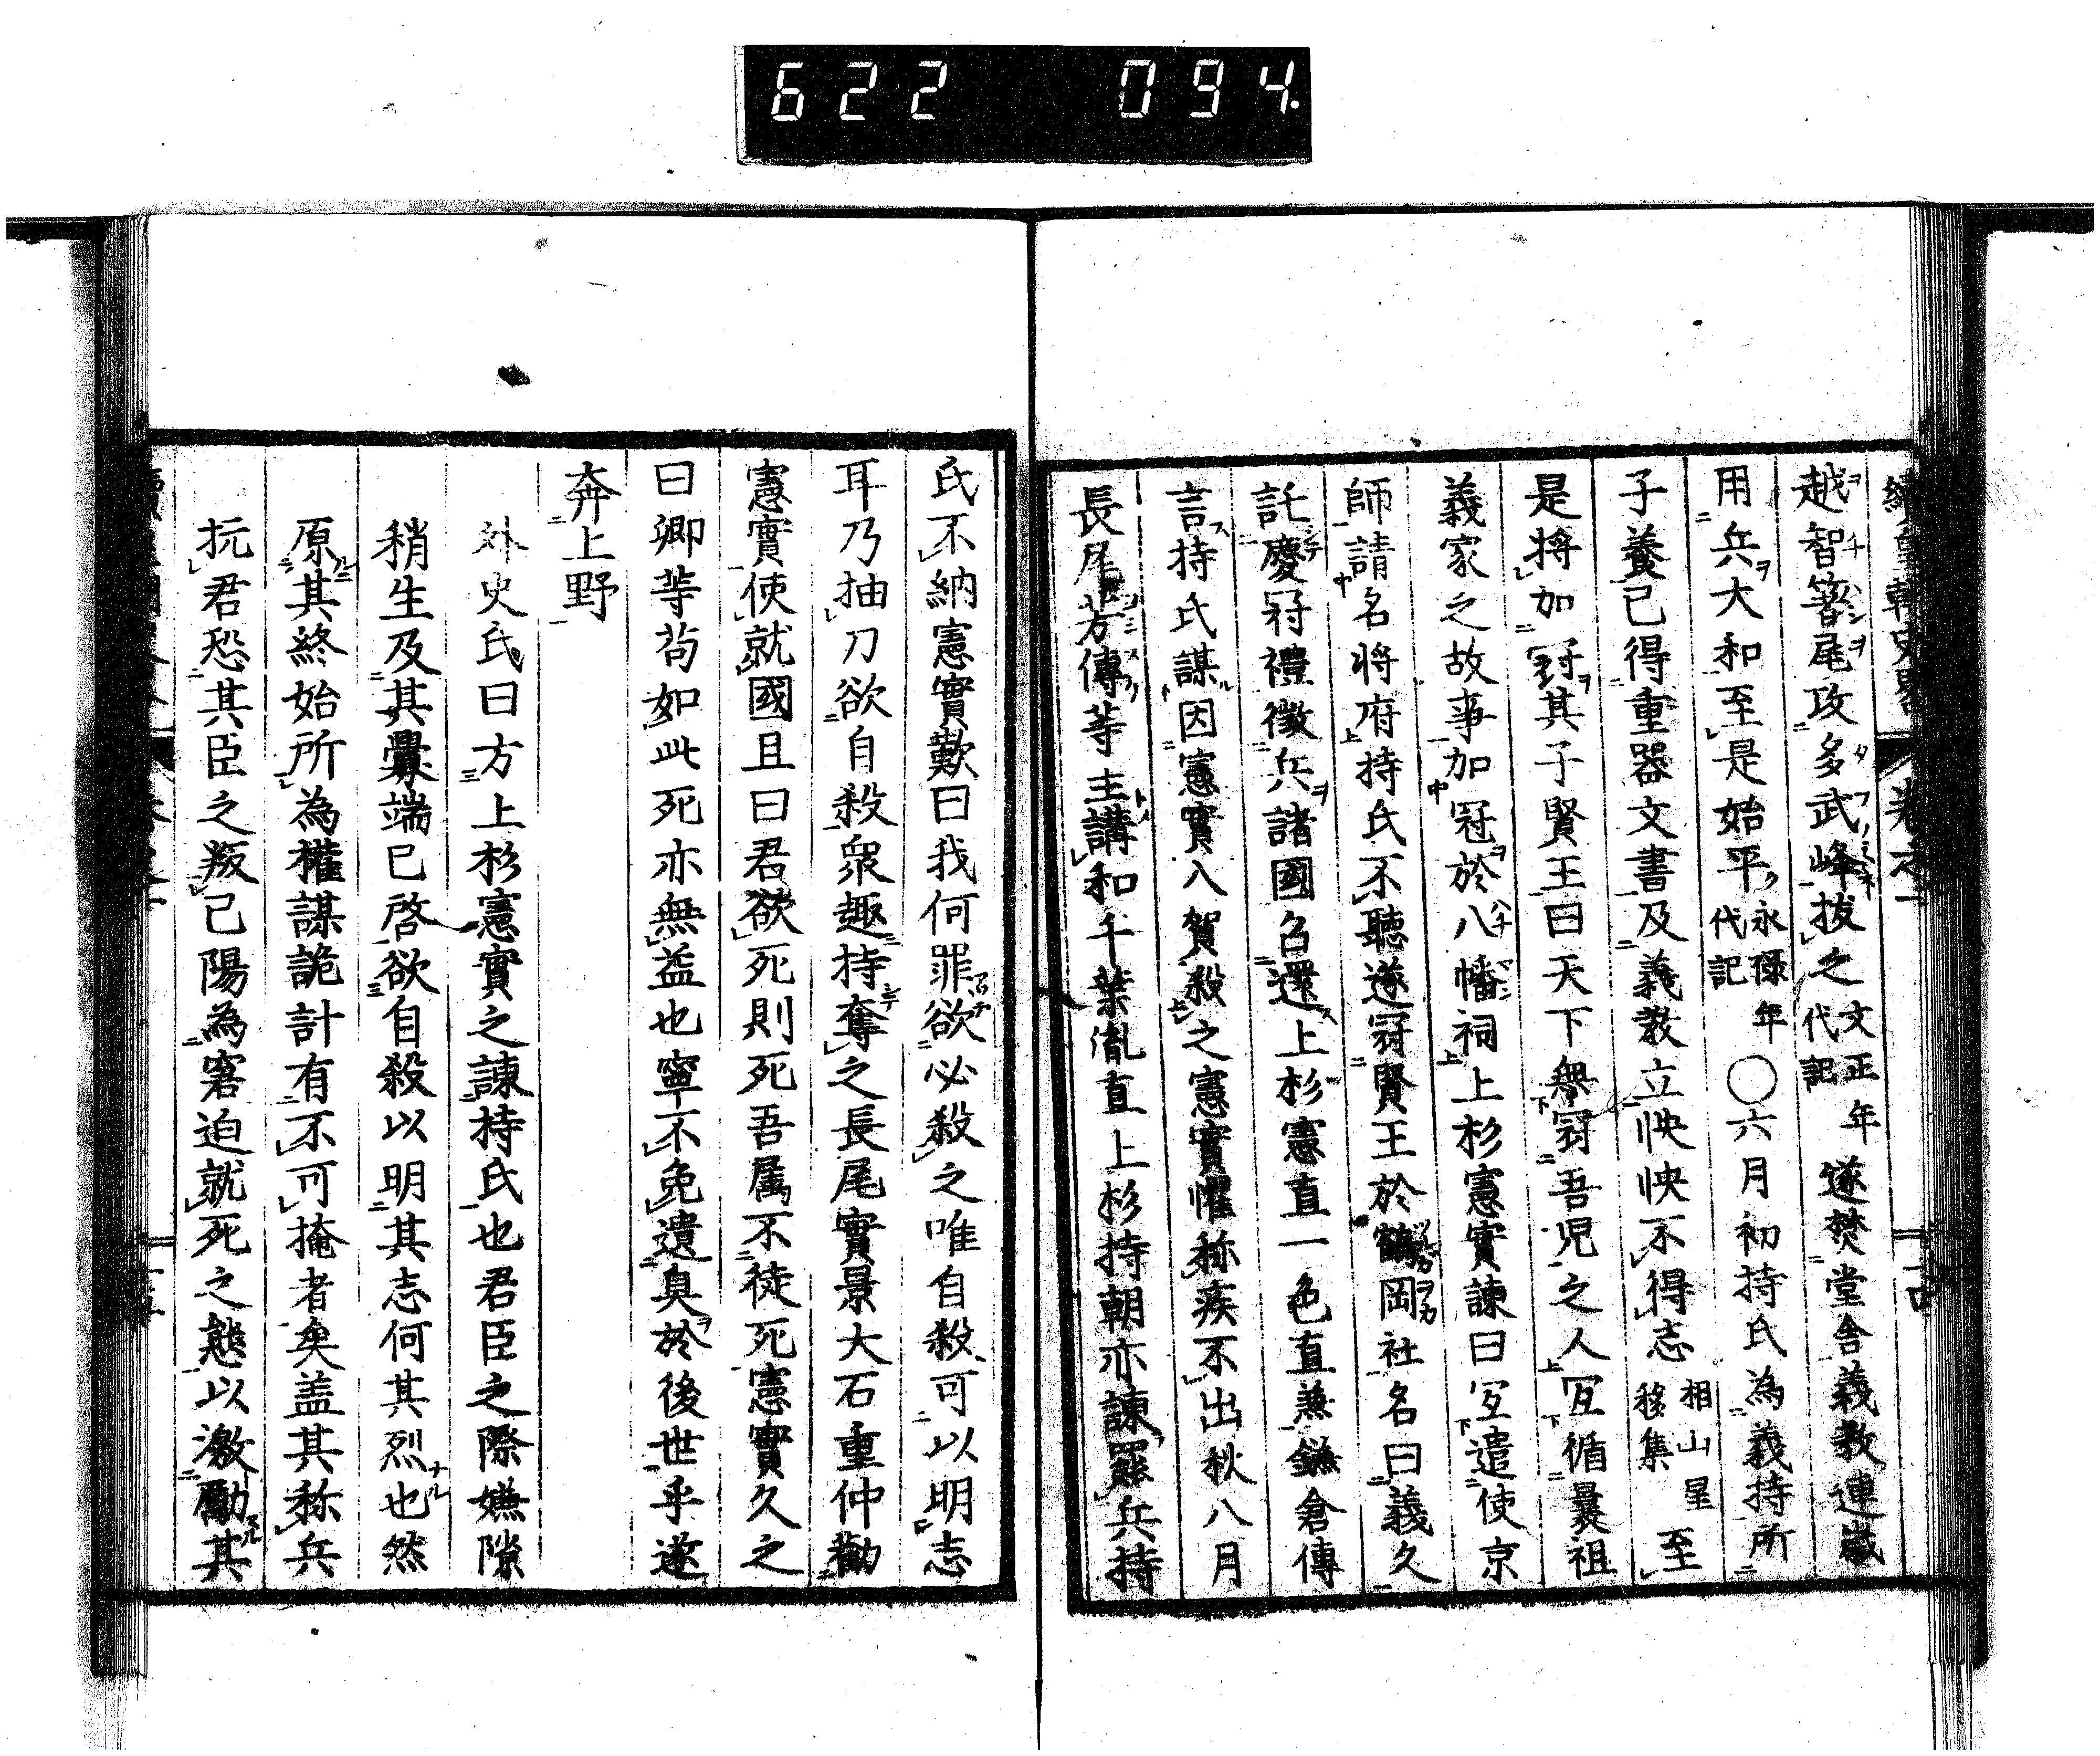 622 094
續皇朝史略 卷之一 十四
越智箸尾攻多武峰拔之文正年代記遂焚堂舍義教連歲
用兵大和至是始平永祿年代記〇六月初持氏為義持所
子養已得重器文書及義教立怏怏不得志相山星移集至
是將加冠其子賢王曰天下舉冠吾児之人宜循曩祖
義家之故事加冠於八幡祠上杉憲實諫曰宜遣使京
師請名將府持氏不聽遂冠賢王於鶴岡社名曰義久
託慶冠禮徵兵諸國召還上杉憲直一色直兼鎌倉傳
言持氏謀因憲實入賀殺之憲實懼称疾不出秋八月
長尾芳傳等主講和千葉胤直上杉持朝亦諫罷兵持
氏不納憲實歎曰我何罪欲必殺之唯自殺可以明志
耳乃抽刀欲自殺衆趣持奪之長尾實景大石重仲勸
憲實使就國且曰君欲死則死吾属不徒死憲實久之
曰卿等苟如此死亦無益也寧不免遺臭於後世乎遂
奔上野
外史氏曰方上杉憲實之諫持氏也君臣之際嫌隙
稍生及其釁端已啓欲自殺以明其志何其烈也然
原其終始所為權謀詭計有不可掩者矣盖其称兵
抗君恐其臣之叛己陽為窘迫就死之態以激勵其